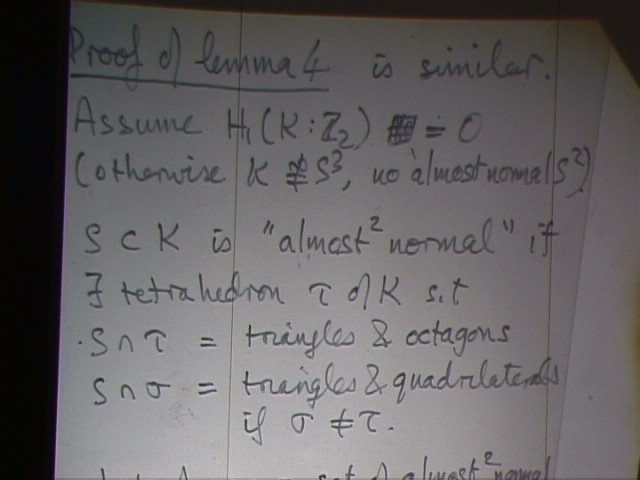 Proof of lemma 4 is similar.
Assume H₁(K:Z₂) = 0
(otherwise K ≇ S³, no almost normal S²)
S ⊂ K is "almost² normal" if
∃ tetrahedron τ of K s.t
S ∩ τ = triangles & octagons
S ∩ σ = triangles & quadrilaterals
if σ ≠ τ.
set of almost² normal